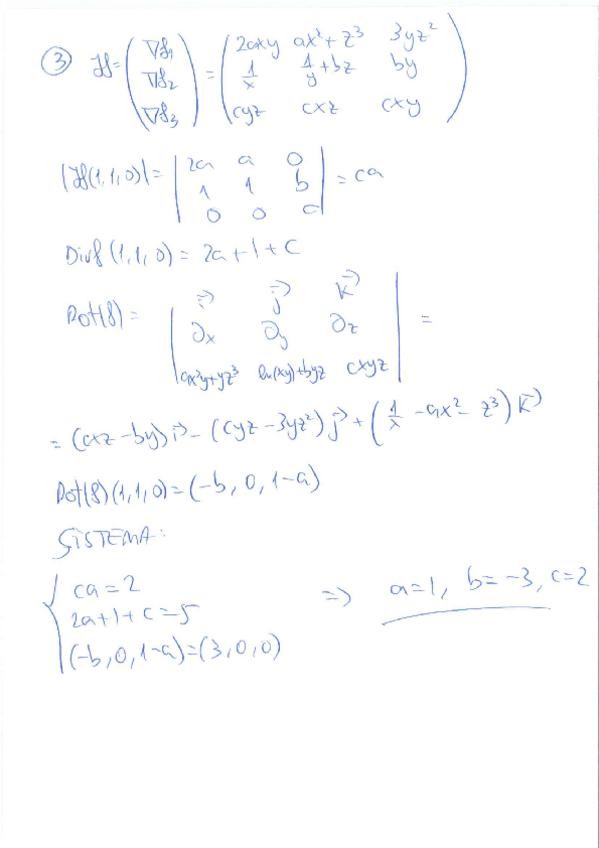 ③ Jf = (∇f₁ ∇f₂ ∇f₃) = (2axy ax²+z³ 3yz²
1/x 1/y+bz by
cyz cxz cxy)
|Jf(1,1,0)| = |2a a 0
1 1 b
0 0 c| = ca
Divf(1,1,0) = 2a+1+c
Rot(f) = |i⃗ j⃗ k⃗
∂x ∂y ∂z
ax²y+yz³ ln(xy)+byz cxyz| =
= (cxz-by)i⃗ - (cyz-3yz²)j⃗ + (1/x -ax²- z³)k⃗
Rot(f)(1,1,0)=(-b, 0, 1-a)
SISTEMA:
{ca=2
2a+1+c=5 => a=1, b=-3, c=2
(-b,0,1-a)=(3,0,0)